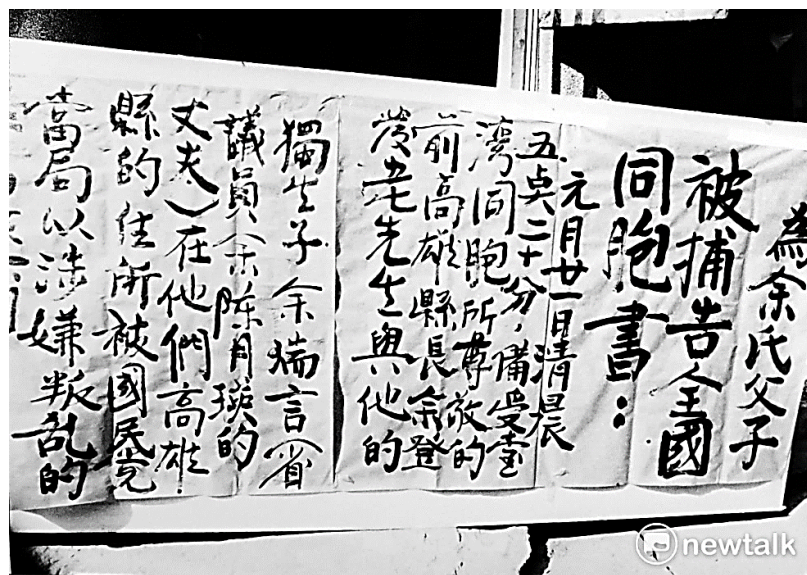 為余氏父子
被捕告全國
同胞書：
元月廿一日清晨
五奌二十分，備受臺
灣同胞所尊敬的
前高雄縣長余登
發老先生與他的
獨生子余瑞言（省
議員余陳月瑛的
丈夫）在他們高雄
縣的住所被國民党
當局以涉嫌叛乱的
newtalk